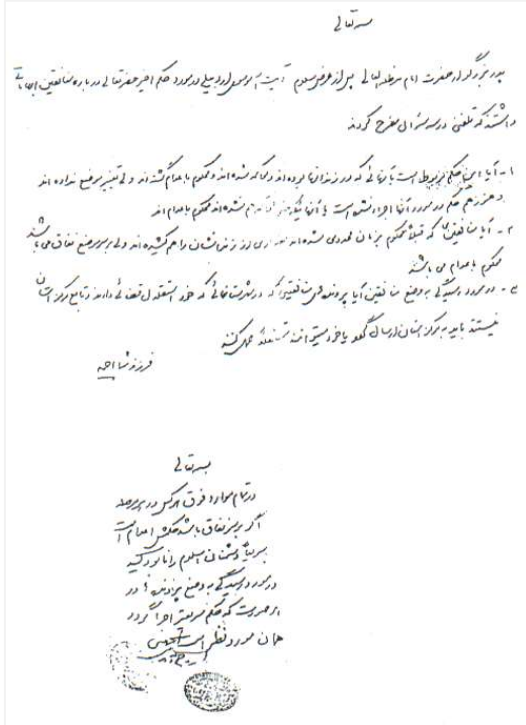 بسمه تعالی
پدر بزرگوار حضرت امام مدظله العالی پس از عرض سلام آیت‌الله موسوی اردبیلی در مورد حکم اخیر حضرتعالی درباره منافقین ابهاماتی
داشتند که تلفنی در سه سؤال مطرح کردند
۱ - آیا این حکم مربوط است به آنهائی که در زندانها بوده‌اند و محاکمه شده‌اند و محکوم باعدام گشته‌اند ولی تغییر موضع نداده‌اند
و هنوز هم حکم در مورد آنها اجرا نشده است یا آنهائیکه حتی محاکمه هم نشده‌اند محکوم باعدام‌اند
۲ - آیا منافقین که قبلاً محکوم بزندان محدودی شده‌اند مقداری از زندانشان را هم کشیده‌اند ولی بر سر موضع نفاق می‌باشند
محکوم باعدام می‌باشند
۳ - در مورد رسیدگی به وضع منافقین آیا پرونده‌های منافقینی که در شهرستانهائی که خود استقلال قضائی دارند و تابع مرکز استان
نیستند باید به مرکز استان ارسال گردد یا خود میتوانند مستقلاً عمل کنند
فرزند شما احمد
بسمه تعالی
در تمام موارد فوق هر کس در هر مرحله
اگر بر سر نفاق باشد حکمش اعدام است
سریعاً دشمنان اسلام را نابود کنید
در مورد رسیدگی به وضع پرونده‌ها در
هر صورت که حکم سریعتر اجرا گردد
همان مورد نظر است